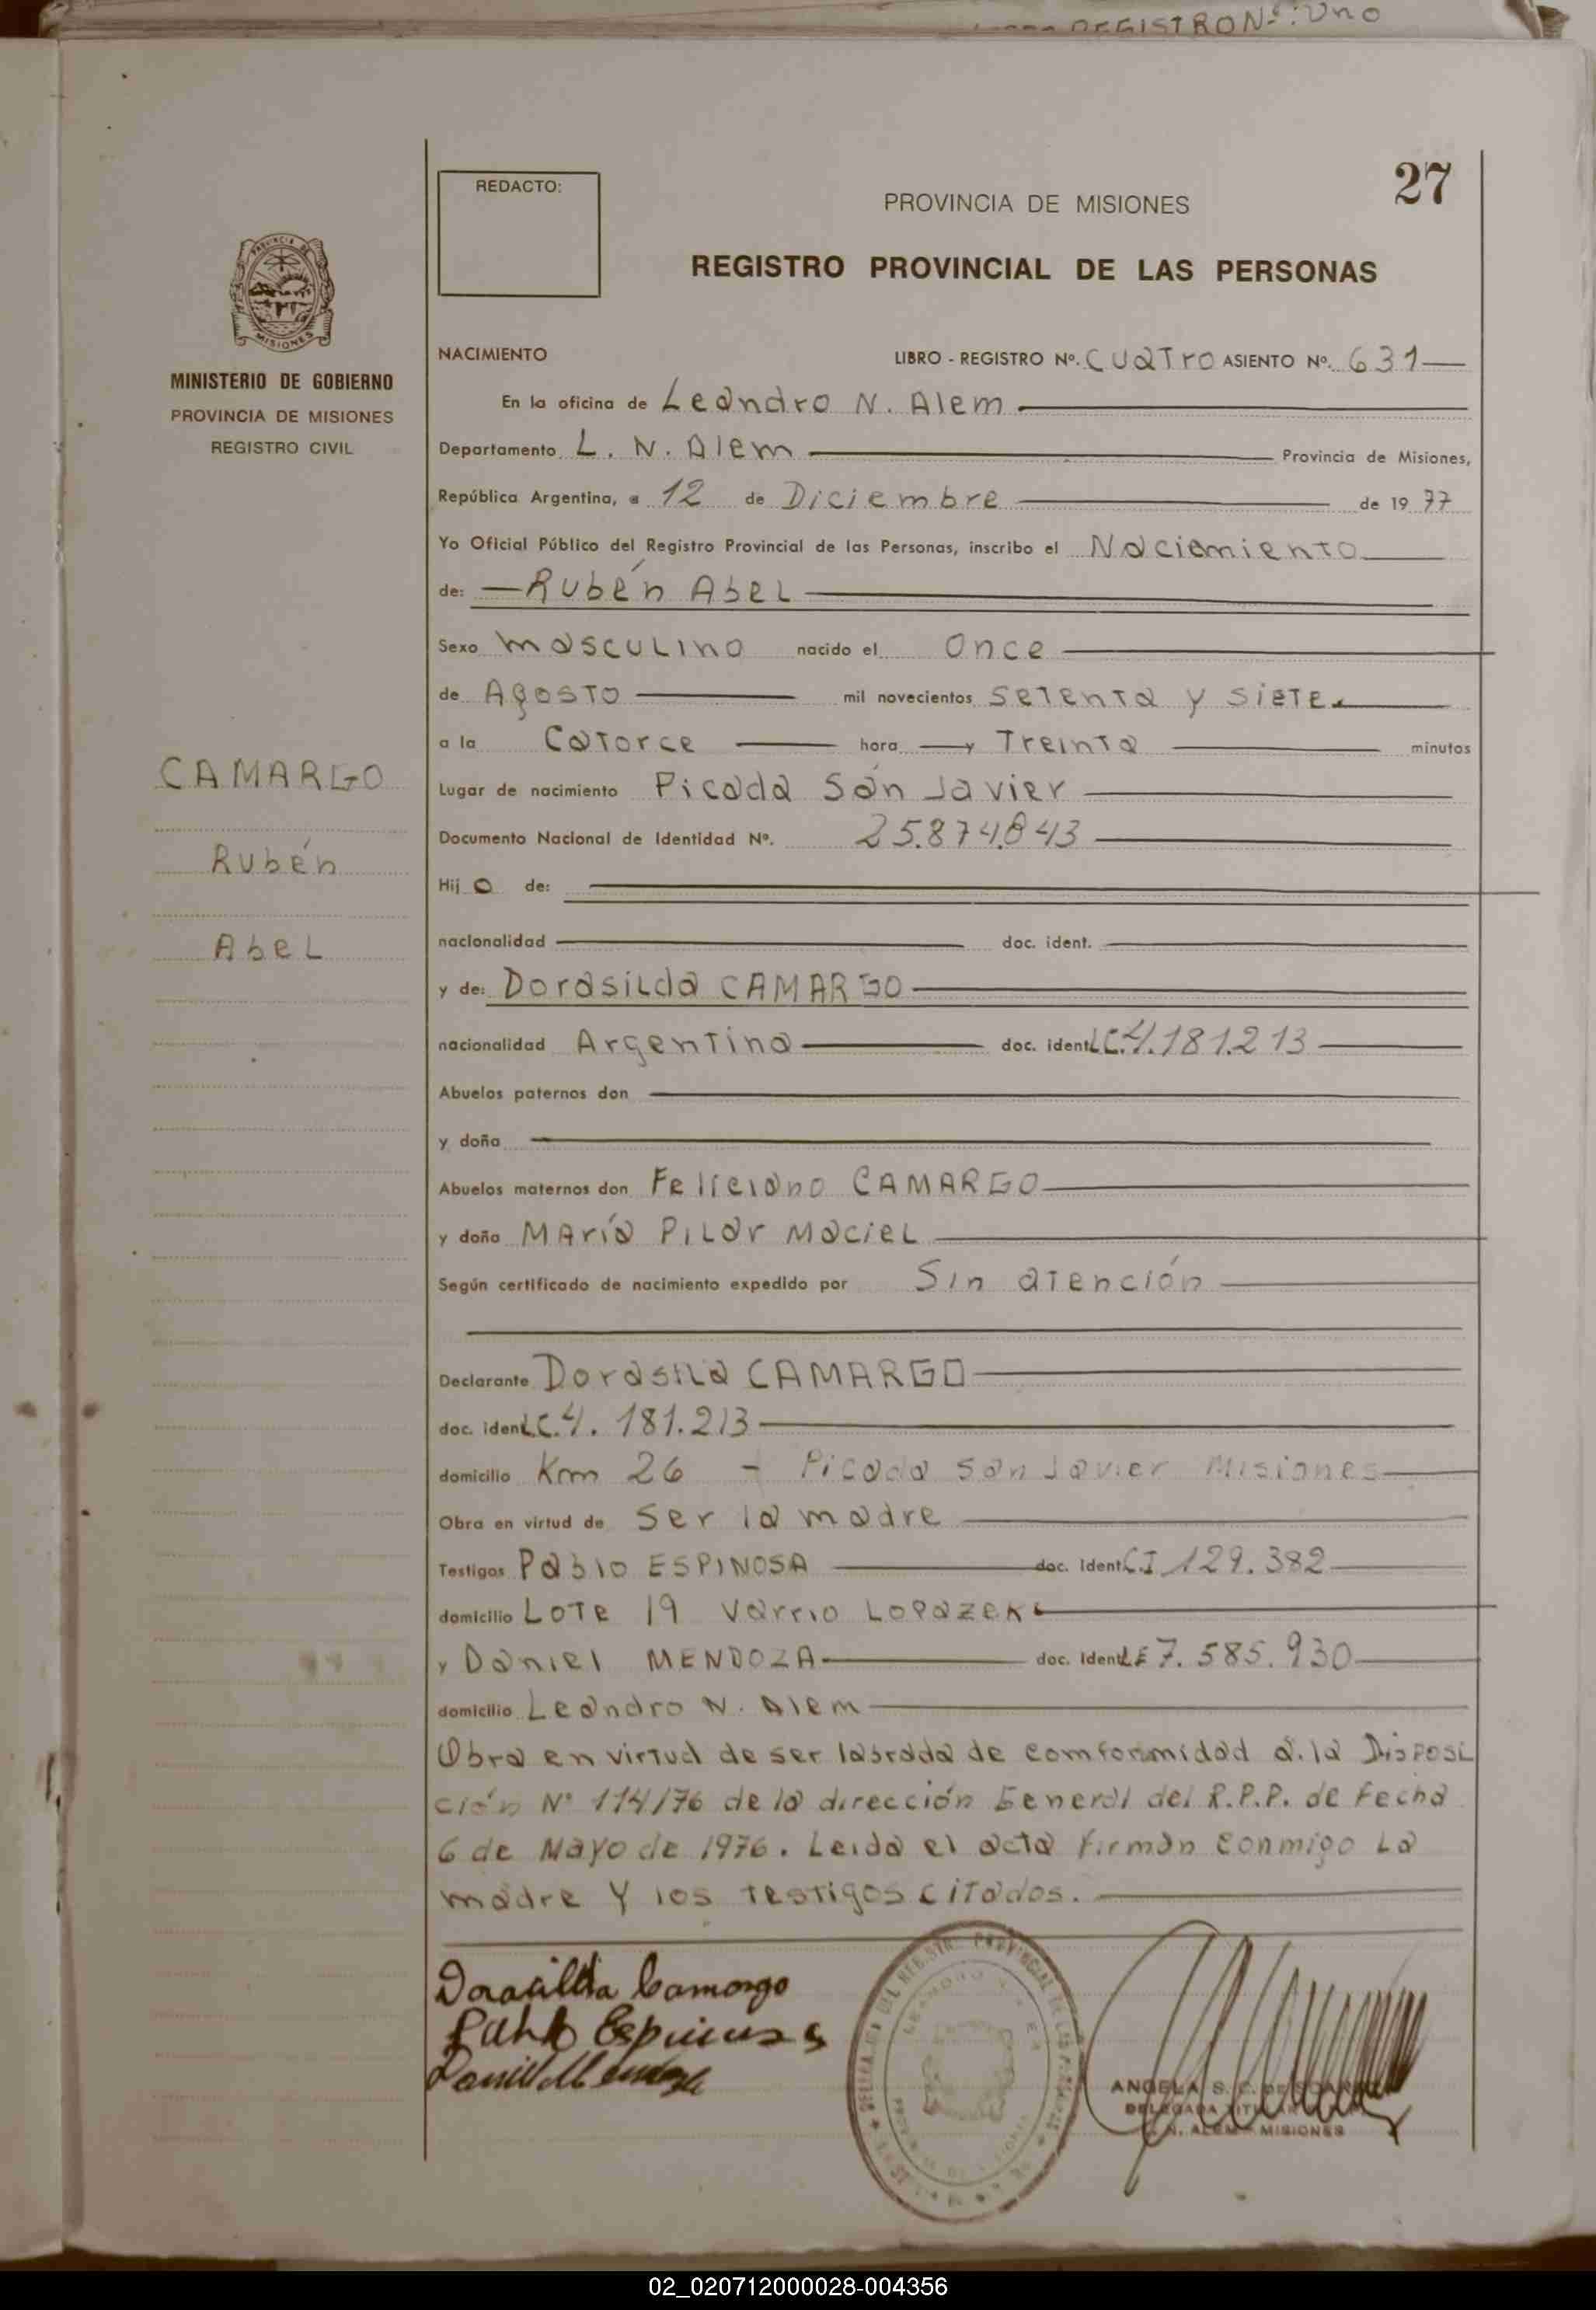 REGISTRO Nº: Uno
27
REDACTO:
PROVINCIA DE MISIONES
REGISTRO PROVINCIAL DE LAS PERSONAS
PROVINCIA DE
MISIONES
MINISTERIO DE GOBIERNO
PROVINCIA DE MISIONES
REGISTRO CIVIL
CAMARGO
Rubén
Abel
NACIMIENTO LIBRO - REGISTRO Nº. CUATRO ASIENTO Nº. 631
En la oficina de Leandro N. Alem
Departamento L. N. Alem Provincia de Misiones,
República Argentina, a 12 de Diciembre de 1977
Yo Oficial Público del Registro Provincial de las Personas, inscribo el Naciemiento
de: Rubén Abel
Sexo masculino nacido el Once
de Agosto mil novecientos setenta y siete.
a la Catorce hora y Treinta minutos
Lugar de nacimiento Picada San Javier
Documento Nacional de Identidad Nº. 25.874.843
Hijo de:
nacionalidad doc. ident.
y de: Dorasilda CAMARGO
nacionalidad Argentina doc. ident LC.4.181.213
Abuelos paternos don
y doña
Abuelos maternos don Feliciano CAMARGO
y doña María Pilar Maciel
Según certificado de nacimiento expedido por Sin atención
Declarante Dorasila CAMARGO
doc. ident LC.4.181.213
domicilio Km 26 - Picada San Javier Misiones
Obra en virtud de ser la madre
Testigos Pablo ESPINOSA doc. ident. CI 129.382
domicilio LOTE 19 Varrio Lopazeki
y Daniel MENDOZA doc. ident LE 7.585.930
domicilio Leandro N. Alem
Obra en virtud de ser labrada de comformidad a.la Disposi
ción Nº 114/76 de la dirección General del R.P.P. de fecha
6 de Mayo de 1976. Leida el acta firman conmigo La
madre y los testigos citados.
Dorasilda Camargo
Pablo Espinosa
Daniel Mendoza
ANGELA S. C. DE
DELEGADA TITULAR
L. N. ALEM - MISIONES
02_020712000028-004356